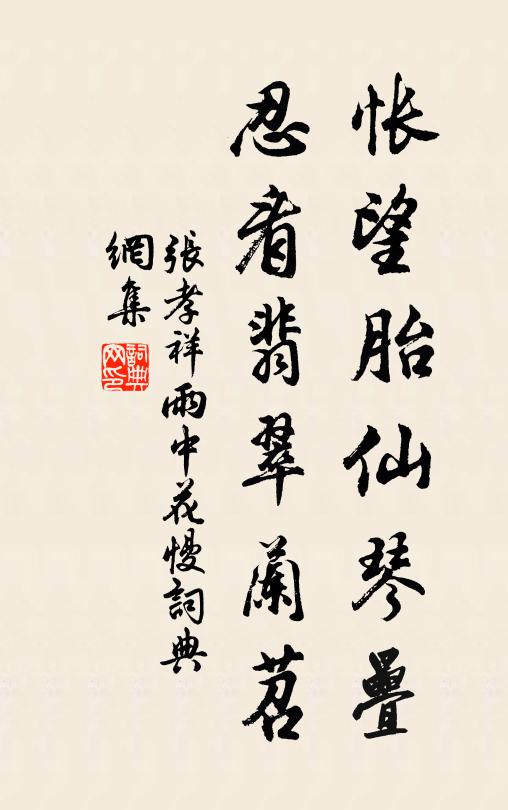 悵望胎仙琴疊
忍看翡翠蘭苕
張孝祥雨中花慢詞典
網集
詞典
網印